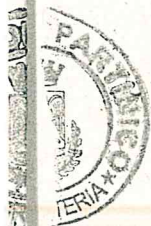 PARTINICO
TERIA